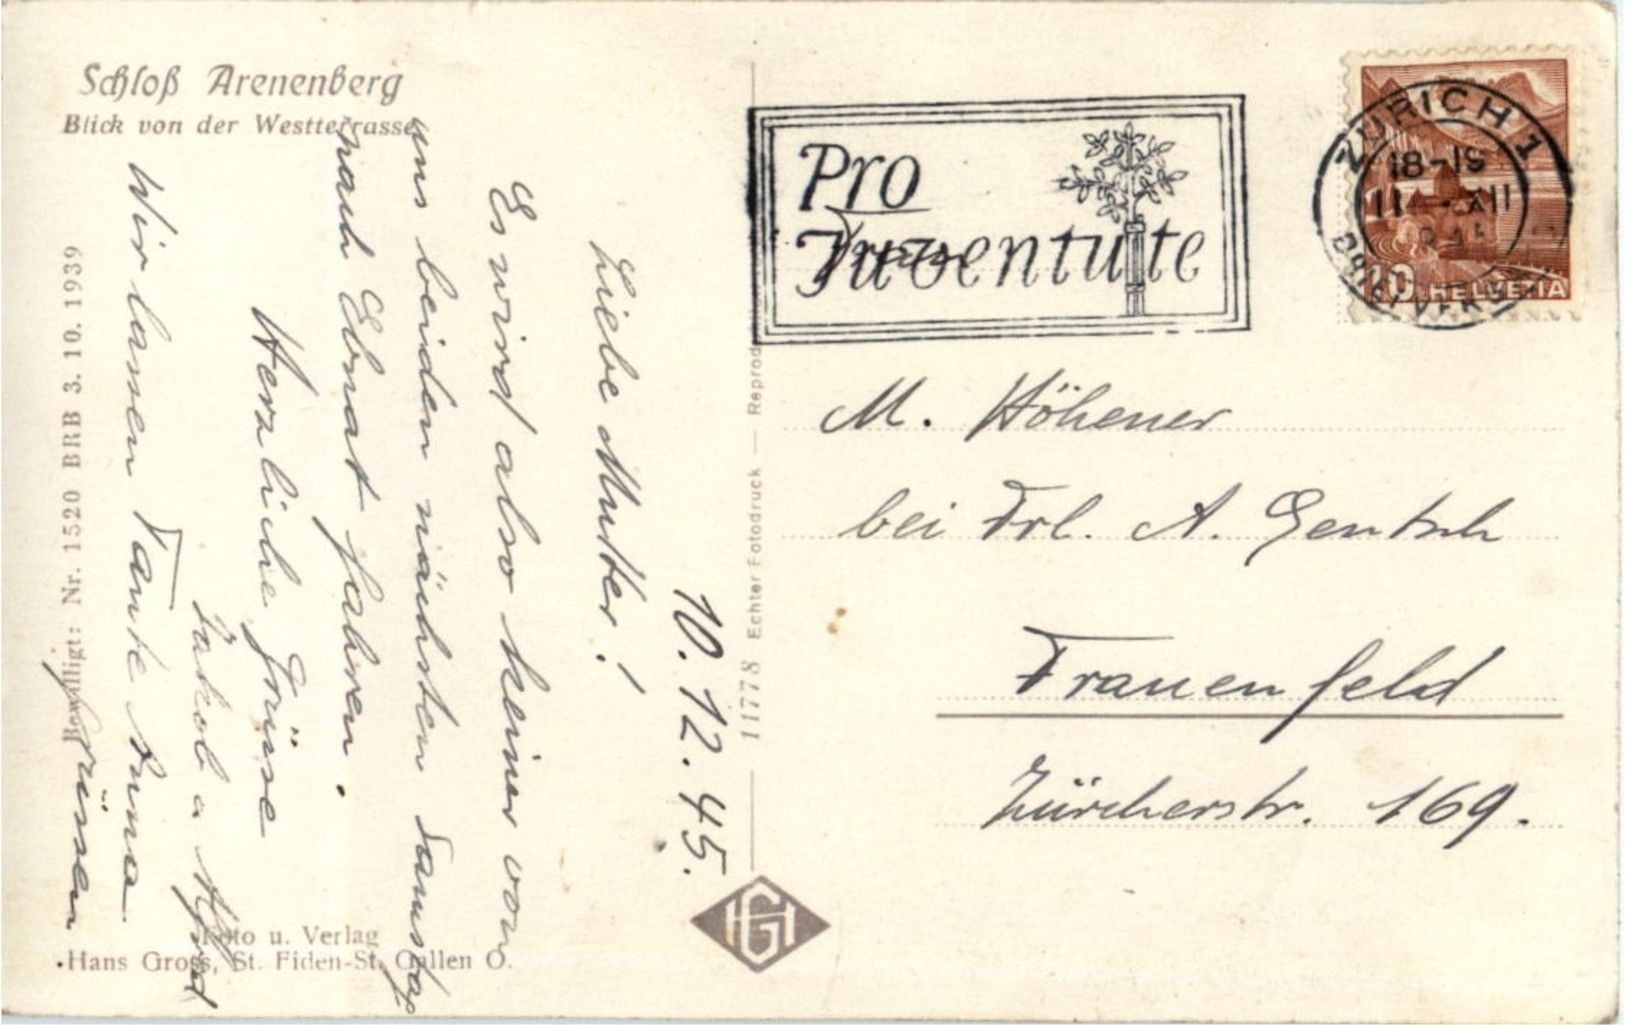 Schloß Arenenberg
Blick von der Westterrasse
10.12.45.
Liebe Mutter!
Es wird also keiner von
uns beiden nächsten Samstag
nach Ebnat fahren.
Herzliche Grüsse
Jakob u.
Wir lassen Tante Anna
grüssen
Bewilligt: Nr. 1520 BRB 3. 10. 1939
Foto u. Verlag
Hans Gross, St. Fiden-St. Gallen O.
11778 Echter Fotodruck — Reprod
HG
Pro
Juventute
ZÜRICH 1
18-19
11. XII
BRIEFVERS
10 HELVETIA
M. Höhener
bei Frl. A. Gentsch
Frauenfeld
Zürcherstr. 169.